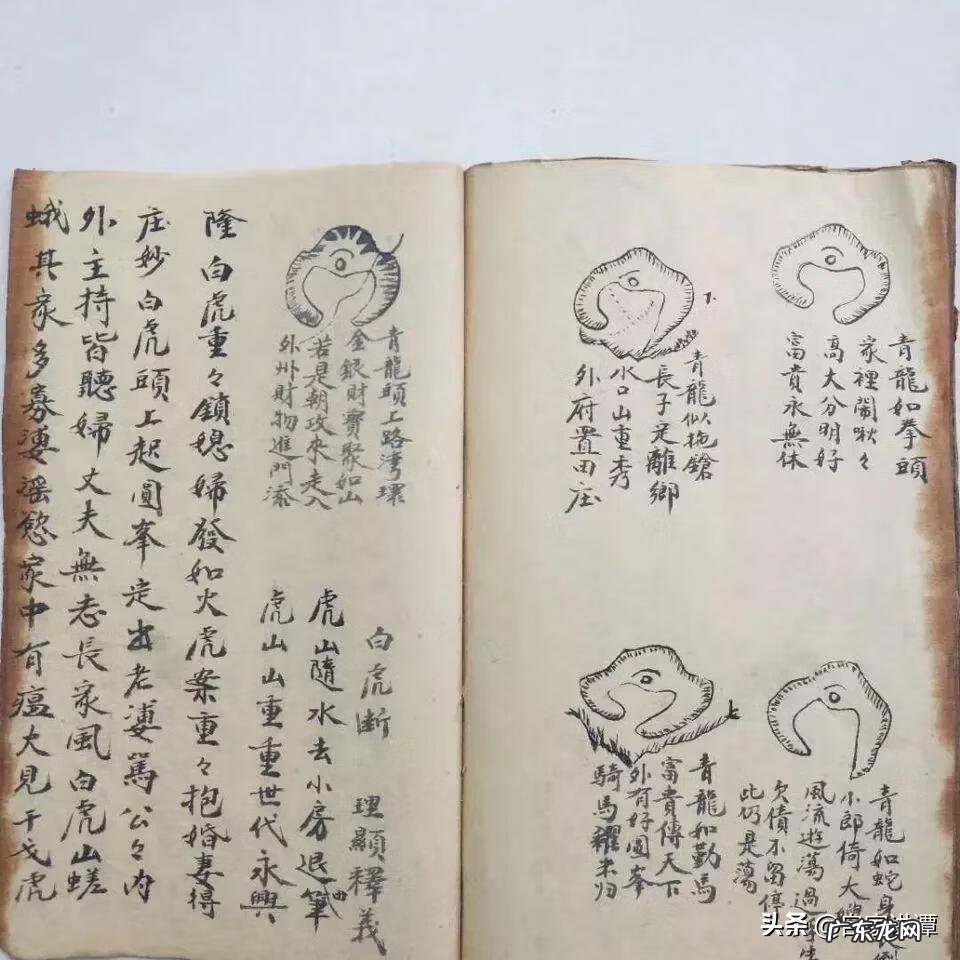 青龍如拳頭
家裡鬧啾々
高大分明好
富貴永無休
青龍如蛇身
小郎倚大
風流遊蕩過
欠債不留停
此仍是蕩
青龍似拖鎗
長子走離鄉
水口山重秀
外府置田庄
青龍如勒馬
富貴傳天下
外有好圓峯
騎馬糶米归
青龍頭上路灣環
金銀財寶聚如山
若是朝攻來走入
外州財物進門添
白虎断 理顯釋義
虎山隨水去小房退筆
虎山山重重世代永興
隆白虎重々鎖媳婦發如火虎案重々抱婚妻得
庄妙白虎頭上起圓峯定出老婆罵公々内
外主持皆聽婦丈夫無志長家風白虎山蹉
蛾其家多寡婆谣慾家中有瘟大見干戈虎
头条
广东龙网